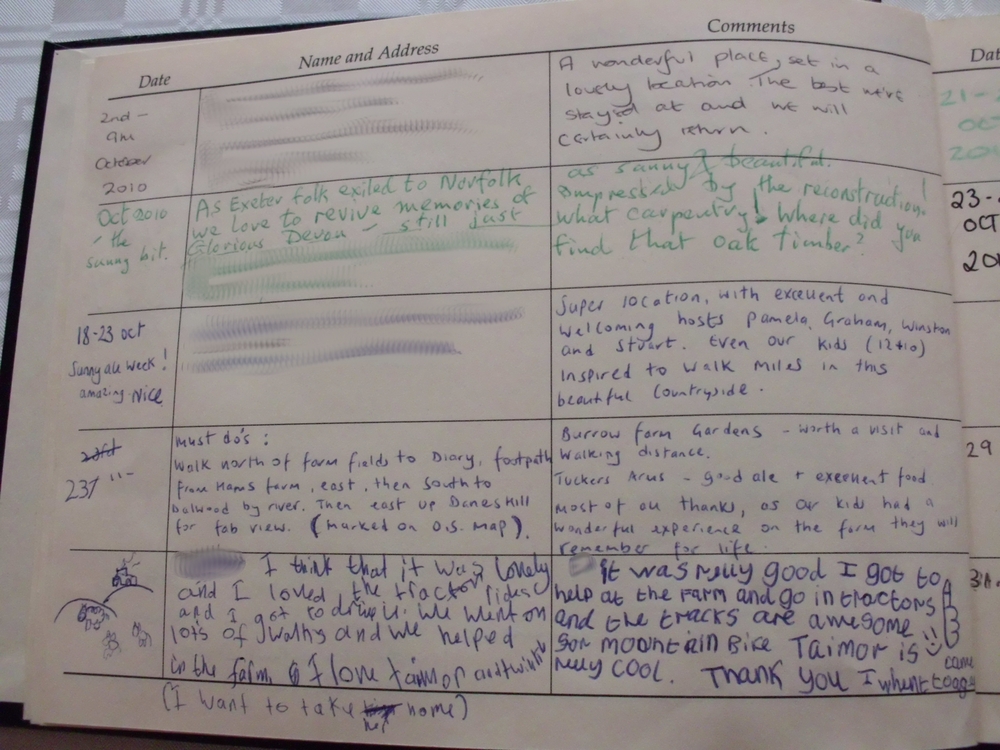 Date
Name and Address
Comments
2nd -
9th
October
2010
A wonderful place, set in a
lovely location. The best we've
stayed at and we will
certainly return.
Oct 2010
- the
sunny bit.
As Exeter folk exiled to Norfolk
we love to revive memories of
Glorious Devon - still just
as sunny & beautiful.
Impressed by the reconstruction!
What carpentry! Where did you
find that oak timber?
18-23 Oct
Sunny all week!
amazing. Nice
Super location, with excellent and
welcoming hosts Pamela, Graham, Winston
and Stuart. Even our kids (12+10)
inspired to walk miles in this
beautiful countryside.
23rd
must do's :
Walk north of farm fields to Diary, footpath
from Hams farm, east, then south to
by river. Then east up Danes Hill
for fab view. (marked on O.S. map).
Burrow farm Gardens - worth a visit and
walking distance.
Tuckers Arms - good ale + excellent food
most of all thanks, as our kids had a
wonderful experience on the farm they will
remember for life.
I think that it was lovely
and I loved the tractor rides
and I got to drive it. We went on
lots of walks and we helped
in the farm. I love taimor and
(I want to take her home)
it was really good I got to
help at the farm and go in tractors
and the tracks are awesome
for mountain Bike Taimor is
really cool. Thank you I
came
Dat
21-
OCT
201
23-
OCT
201
29